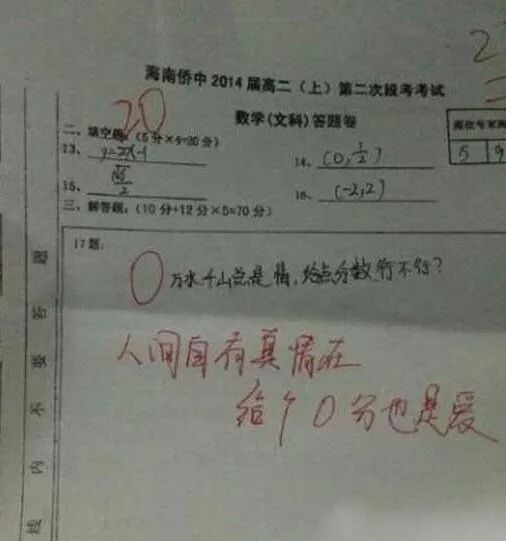 海南侨中 2014 届高二（上）第二次段考考试
数学(文科)答题卷
20
二、填空题:(5分×4=20分)
13、 y=2x-1
14、 (0, 1/2)
15、 √5/2
16、 (-2,2)
5 9
三、解答题:(10分+12分×5=70分)
17题:
0 万水千山总是情,给点分数行不行?
人间自有真情在
给个0分也是爱
题
答
要
不
内
线